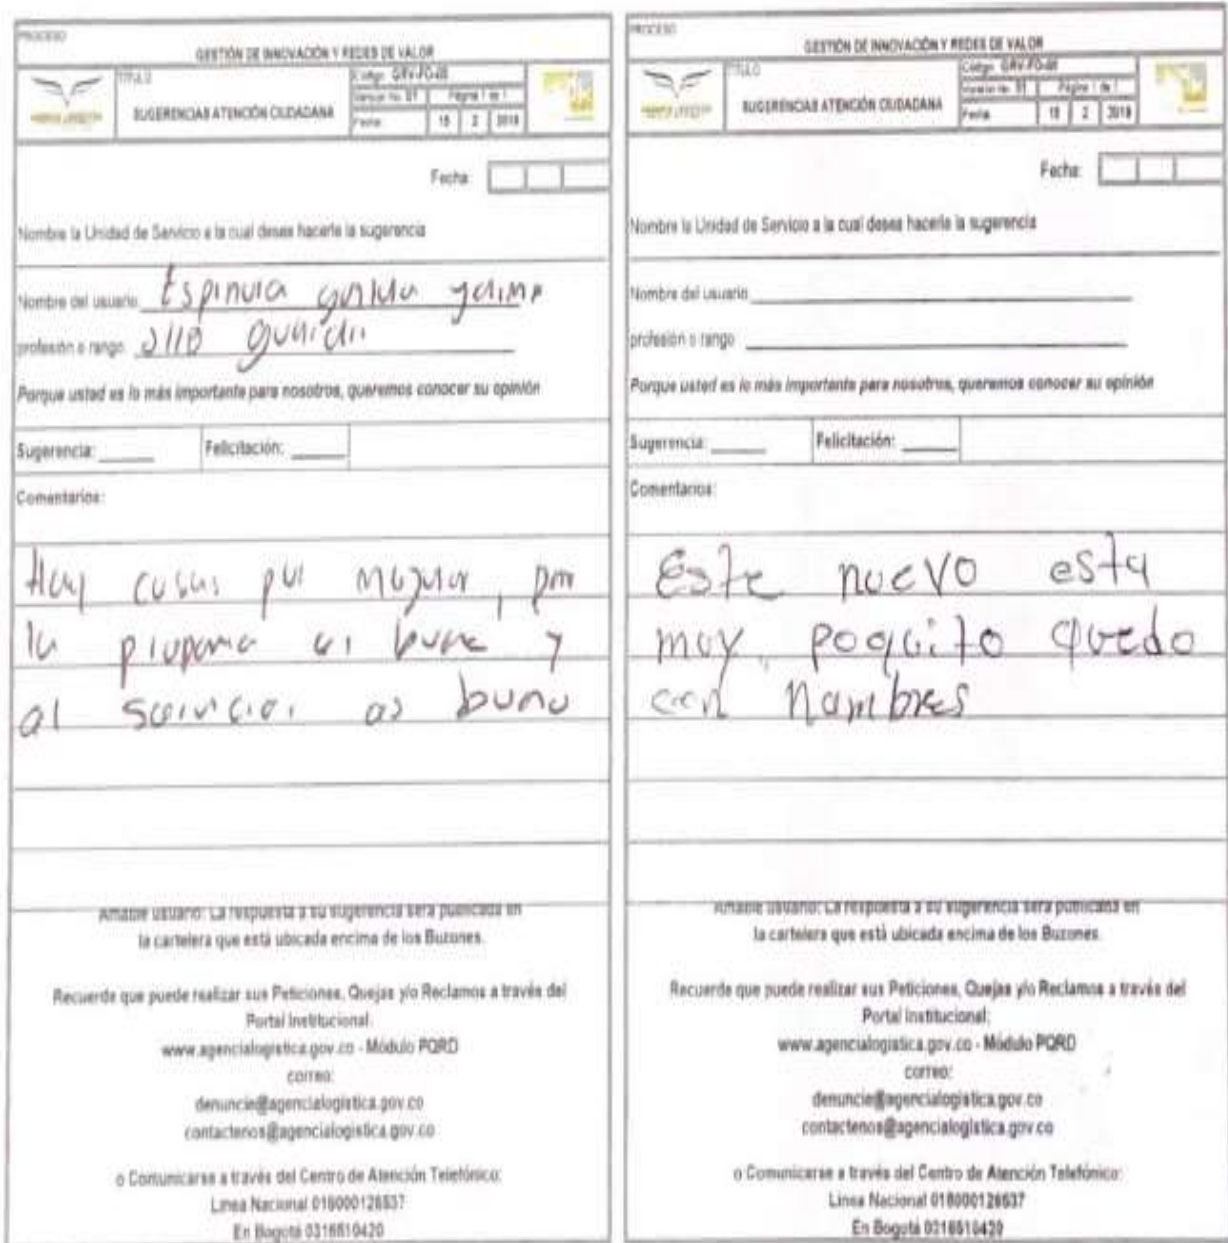 PROCESO
GESTIÓN DE INNOVACIÓN Y REDES DE VALOR
TITULO
SUGERENCIAS ATENCIÓN CIUDADANA
Código: GRV-FO-08
Versión No. 01 Página 1 de 1
Fecha: 15 2 2018
Fecha:
Nombre la Unidad de Servicio a la cual desea hacerle la sugerencia
Nombre del usuario
profesión o rango
Porque usted es lo más importante para nosotros, queremos conocer su opinión
Sugerencia: Felicitación:
Comentarios:
Hay cosas por
la y
al
Amable usuario: La respuesta a su sugerencia será publicada en
la cartelera que está ubicada encima de los Buzones.
Recuerde que puede realizar sus Peticiones, Quejas y/o Reclamos a través del
Portal Institucional:
www.agencialogistica.gov.co - Módulo PQRD
correo:
denuncie@agencialogistica.gov.co
contactenos@agencialogistica.gov.co
o Comunicarse a través del Centro de Atención Telefónico:
Linea Nacional 018000126537
En Bogotá 0316510420
PROCESO
GESTIÓN DE INNOVACIÓN Y REDES DE VALOR
TITULO
SUGERENCIAS ATENCIÓN CIUDADANA
Código: GRV-FO-08
Versión No. 01 Página 1 de 1
Fecha: 15 2 2018
Fecha:
Nombre la Unidad de Servicio a la cual desea hacerle la sugerencia
Nombre del usuario
profesión o rango
Porque usted es lo más importante para nosotros, queremos conocer su opinión
Sugerencia: Felicitación:
Comentarios:
Este nuevo esta
muy poquito quedo
con hambres
Amable usuario: La respuesta a su sugerencia será publicada en
la cartelera que está ubicada encima de los Buzones.
Recuerde que puede realizar sus Peticiones, Quejas y/o Reclamos a través del
Portal Institucional:
www.agencialogistica.gov.co - Módulo PQRD
correo:
denuncie@agencialogistica.gov.co
contactenos@agencialogistica.gov.co
o Comunicarse a través del Centro de Atención Telefónico:
Linea Nacional 018000126537
En Bogotá 0316510420